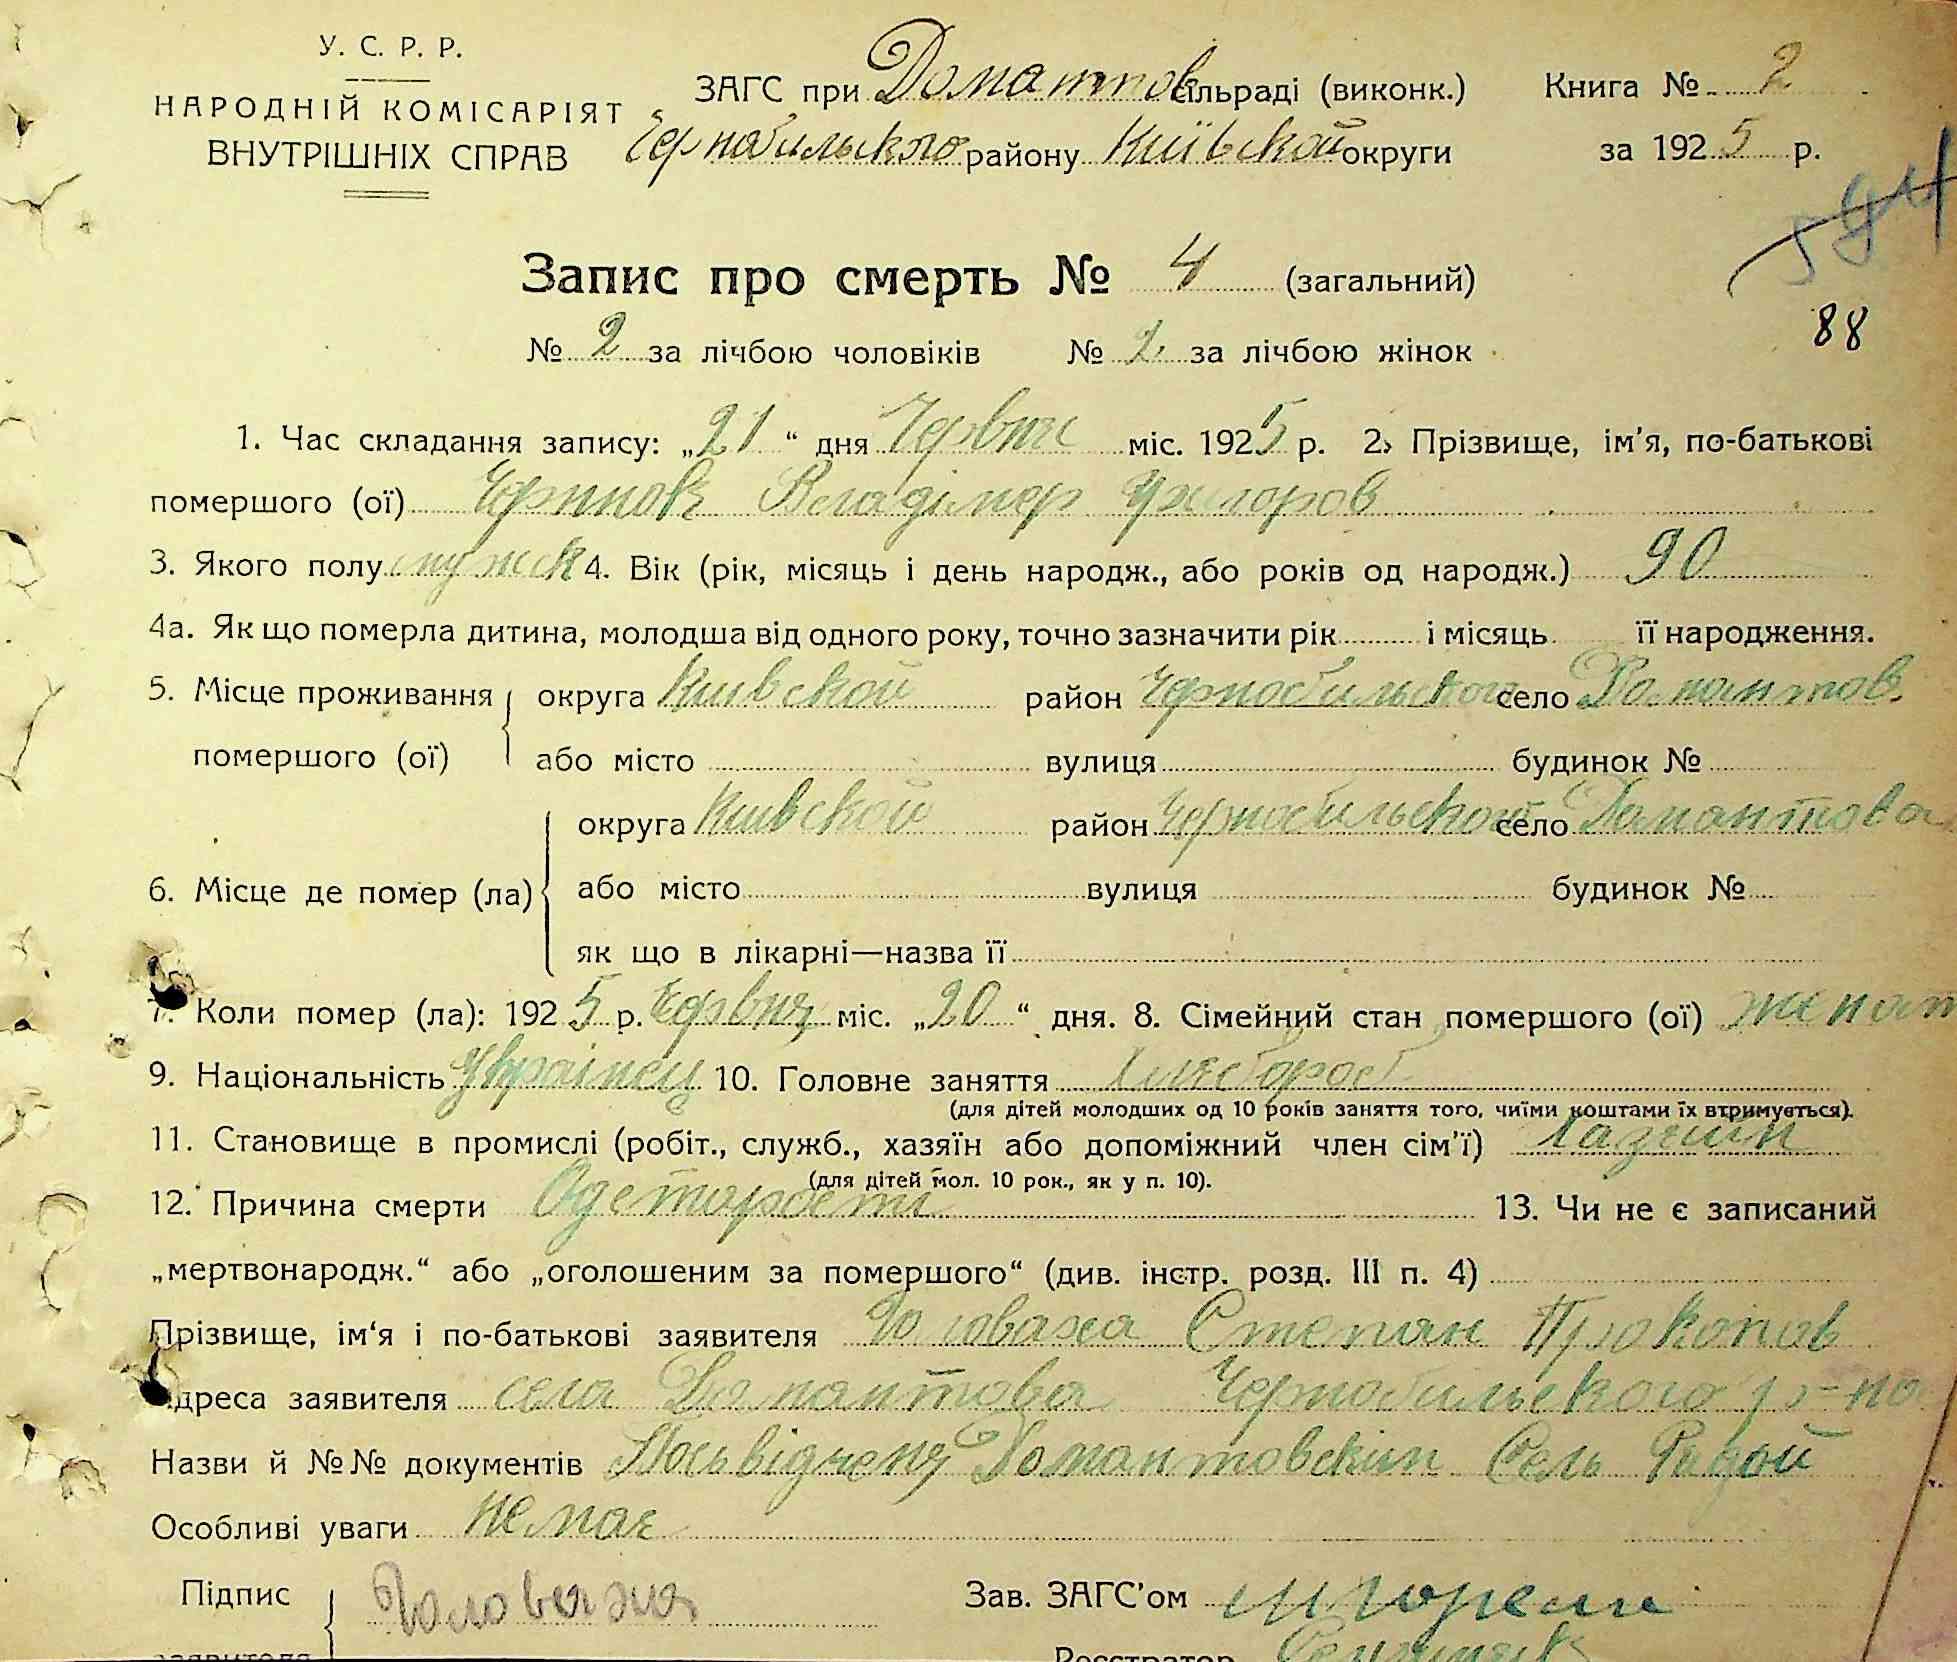 У. С. Р. Р.
НАРОДНІЙ КОМІСАРІЯТ
ВНУТРІШНІХ СПРАВ
ЗАГС при Домантов сільраді (виконк.)
Чернобильского району Київской округи
Книга № 2
за 1925 р.
594
88
Запис про смерть № 4 (загальний)
№ 2 за лічбою чоловіків № 2 за лічбою жінок
1. Час складання запису: „21“ дня Червня міс. 1925 р. 2. Прізвище, ім'я, по-батькові
помершого (ої) Владімер
3. Якого полу мужск 4. Вік (рік, місяць і день народж., або років од народж.) 90
4а. Як що померла дитина, молодша від одного року, точно зазначити рік і місяць її народження.
5. Місце проживання округа Киівской район Чернобильского село Домантов.
помершого (ої) або місто вулиця будинок №
округа Киівской район Чернобильского село Домантова
6. Місце де помер (ла) або місто вулиця будинок №
як що в лікарні—назва її
7. Коли помер (ла): 1925 р. Червня міс. „20“ дня. 8. Сімейний стан помершого (ої) женат
9. Національність Українец 10. Головне заняття Хлебороб
(для дітей молодших од 10 років заняття того, чиїми коштами їх втримується).
11. Становище в промислі (робіт., служб., хазяїн або допоміжний член сім'ї) Хазяин
(для дітей мол. 10 рок., як у п. 10).
12. Причина смерти Од старости 13. Чи не є записаний
„мертвонародж.“ або „оголошеним за помершого“ (див. інстр. розд. III п. 4)
Прізвище, ім'я і по-батькові заявителя Головаха Степан Прокопов
Адреса заявителя села Домантова Чернобильского р-на
Назви й №№ документів Посьвідчену Домантовскім Сель Радой
Особливі уваги Немає
Підпис Головаха Зав. ЗАГС'ом
заявителя Реєстратор